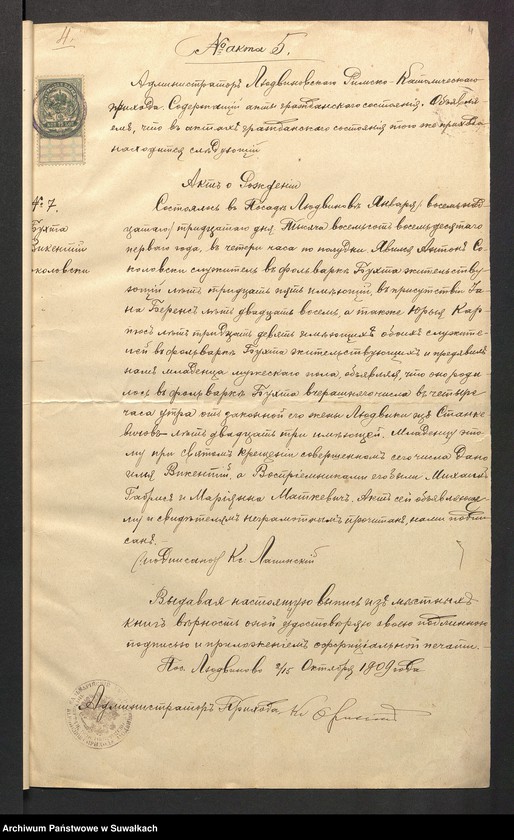 4.
№ акта 5.
Администраторъ Людвиновскаго Римско-Католическаго
прихода. Содержащiй акты гражданскаго состоянiя. Объявля
емъ, что въ актахъ гражданскаго состоянiя того же прихода
находится слѣдующiй
Актъ о Рожденiи
№ 7.
Бухта
Викентiй
околовски
Состоялось въ Посадѣ Людвиновъ Января / восемьнад
цатаго / тридцатаго дня Тысяча восемьсотъ восемьдесятаго
перваго года, въ четыри часа по полудни. Явился Антонъ Со
коловски служитель въ фольваркѣ Бухта жительству
ющiй лѣтъ тридцать пять имѣющiй, въ присутствiи
на лѣтъ двадцать восемь, а также Юрья Кар
лѣтъ тридцать девять имѣющихъ обоихъ служите
лей въ фольваркѣ Бухта жительствующихъ и предъявилъ
намъ младенца мужескаго пола, объявляя, что оно роди
лось въ фольваркѣ Бухта вчерашняго числа въ четыре
часа утра отъ законной его жены Людвики изъ Станке
вичовъ лѣтъ двадцать три имѣющей. Младенцу это
му при святомъ крещенiи совершенномъ сего числа дано
имя Викентiй, а Воспрiемниками его были Михаилъ
и Марiянна Маткевичъ. Актъ сей объявляюще
му и свидѣтелямъ неграмотнымъ прочитанъ, нами подпи
санъ.
(подписано) Кс.
Выдавая настоящую выпись изъ мѣстныхъ
книгъ вѣрность оной удостовѣряю своею подлинною
подписью и приложенiемъ оффицiальной печати.
Пос. Людвиново 2/15 Октября 1909 года
Администраторъ Прихода Кс
Archiwum Państwowe w Suwałkach